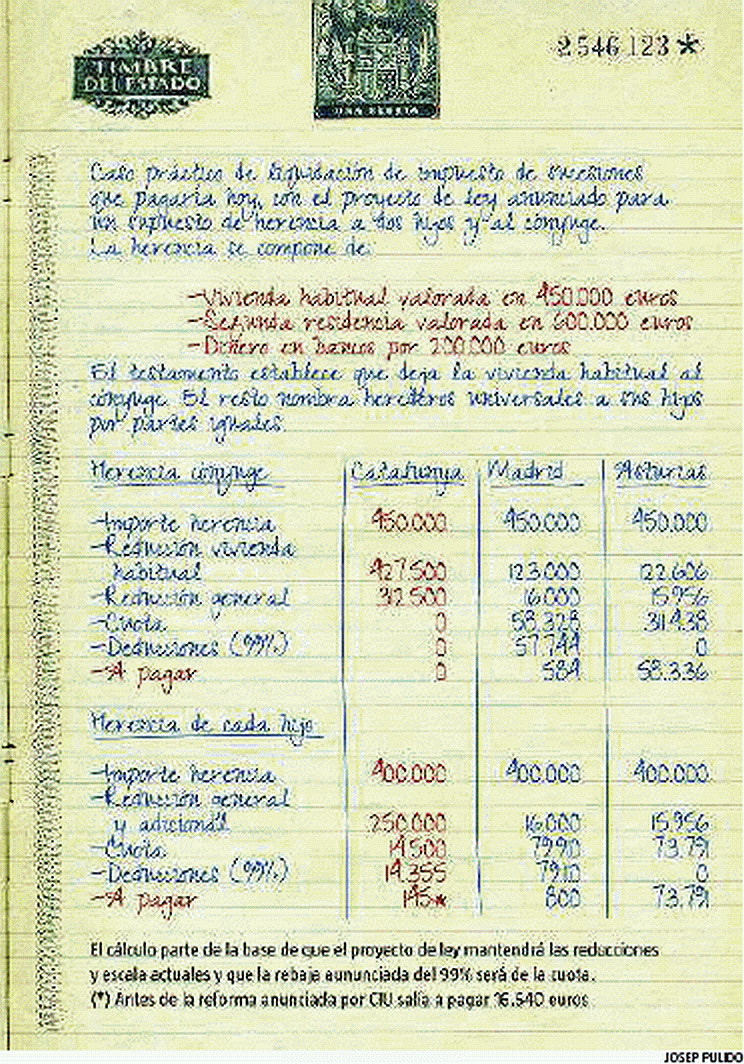 TIMBRE
DEL ESTADO
2546123*
Caso práctico de liquidación de impuesto de sucesiones
que pagaría hoy, con el proyecto de ley anunciado para
un supuesto de herencia a dos hijos y al cónyuge.
La herencia se compone de:
-Vivienda habitual valorada en 450.000 euros
-Segunda residencia valorada en 600.000 euros
-Dinero en bancos por 200.000 euros
El testamento establece que deja la vivienda habitual al
cónyuge. El resto nombra herederos universales a sus hijos
por partes iguales.
Herencia cónyuge Catalunya Madrid Asturias
-Importe herencia 450.000 450.000 450.000
-Reducción vivienda
habitual 427.500 123.000 122.606
-Reducción general 312.500 16.000 15.956
-Cuota 0 58.328 311.438
-Deducciones (99%) 0 57.744 0
-A pagar 0 584 58.336
Herencia de cada hijo
-Importe herencia 400.000 400.000 400.000
-Reducción general
y adicional 250.000 16.000 15.956
-Cuota 14.500 7990 73.791
-Deducciones (99%) 14.355 7910 0
-A pagar 145* 800 73.791
El cálculo parte de la base de que el proyecto de ley mantendrá las reducciones
y escala actuales y que la rebaja aununciada del 99% será de la cuota.
(*) Antes de la reforma anunciada por CIU salía a pagar 16.540 euros
JOSEP PULIDO